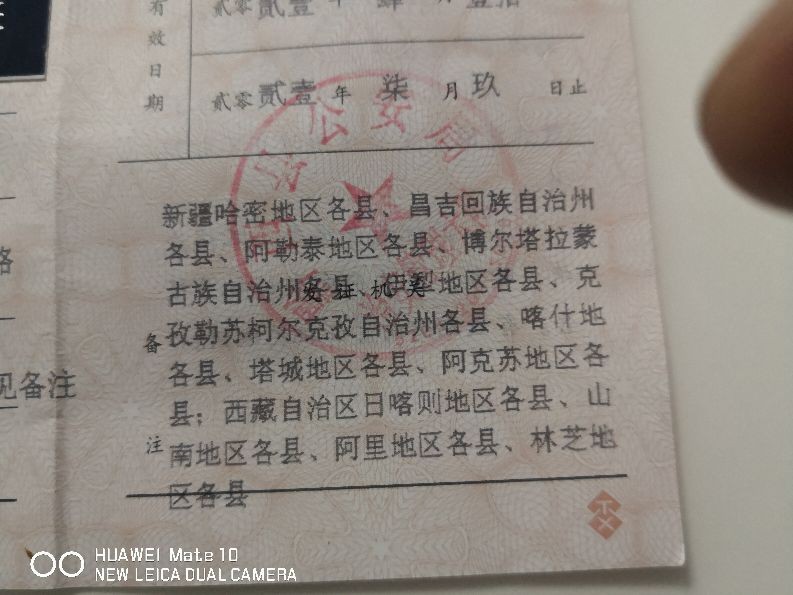 有效日期
贰零贰壹 年 肆 月 壹拾
贰零贰壹 年 柒 月 玖 日止
公安局
备注
新疆哈密地区各县、昌吉回族自治州
各县、阿勒泰地区各县、博尔塔拉蒙
古族自治州各县、伊犁地区各县、克
孜勒苏柯尔克孜自治州各县、喀什地
各县、塔城地区各县、阿克苏地区各
县；西藏自治区日喀则地区各县、山
南地区各县、阿里地区各县、林芝地
区各县
发证机关
见备注
HUAWEI Mate 10
NEW LEICA DUAL CAMERA